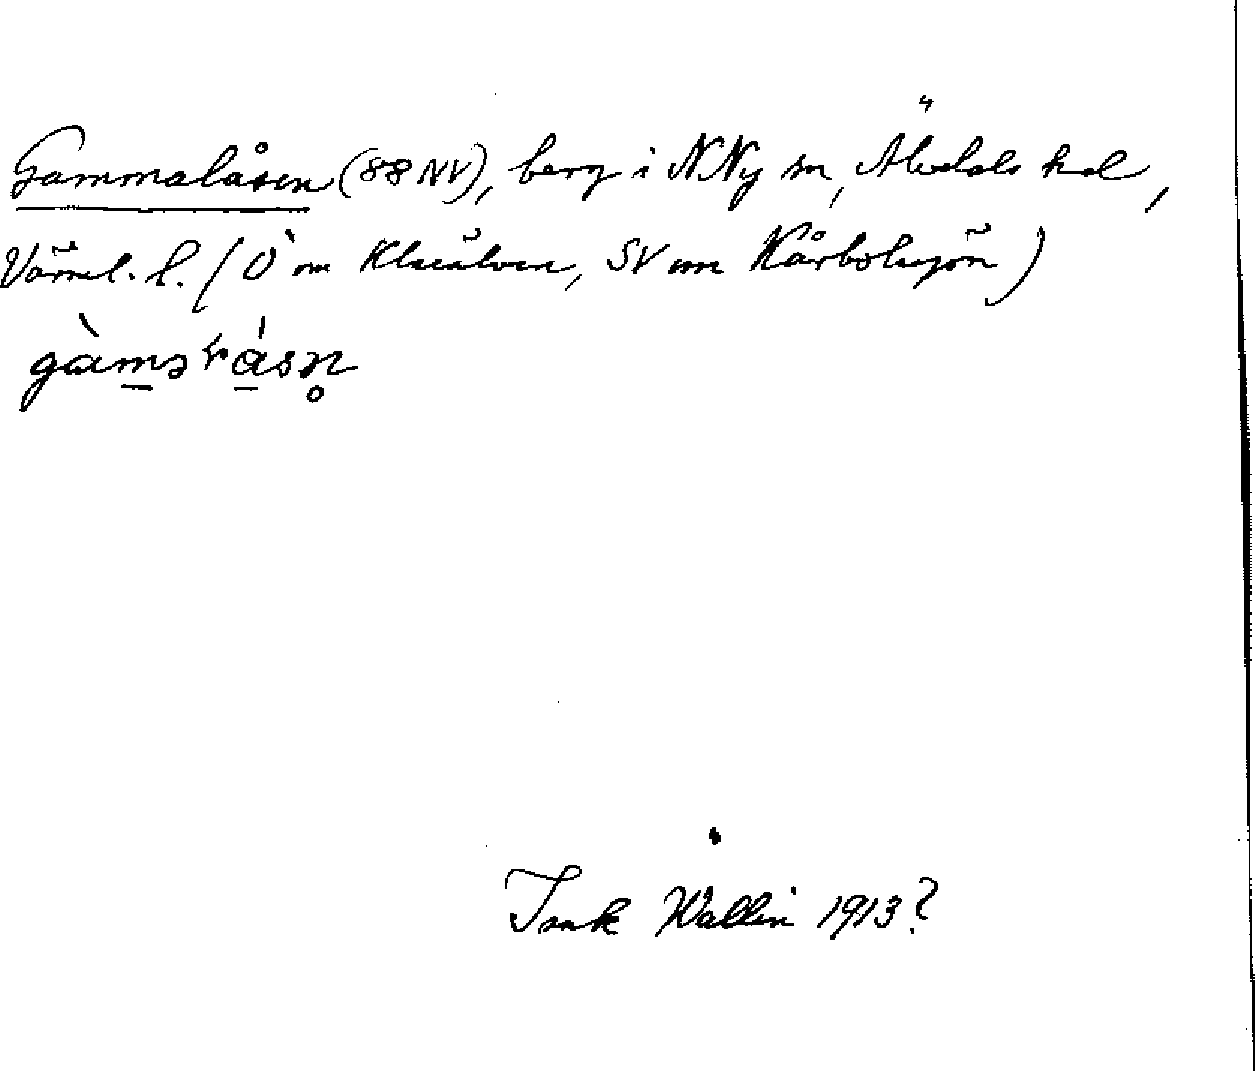 Gammalåsen (88 NV), berg i N Ny sn, Älvdals hd,
Värml. l. (Ö om Klarälven, SV om Kårbolssjön)
gàməɽásn̥
Isak Wallin 1913?